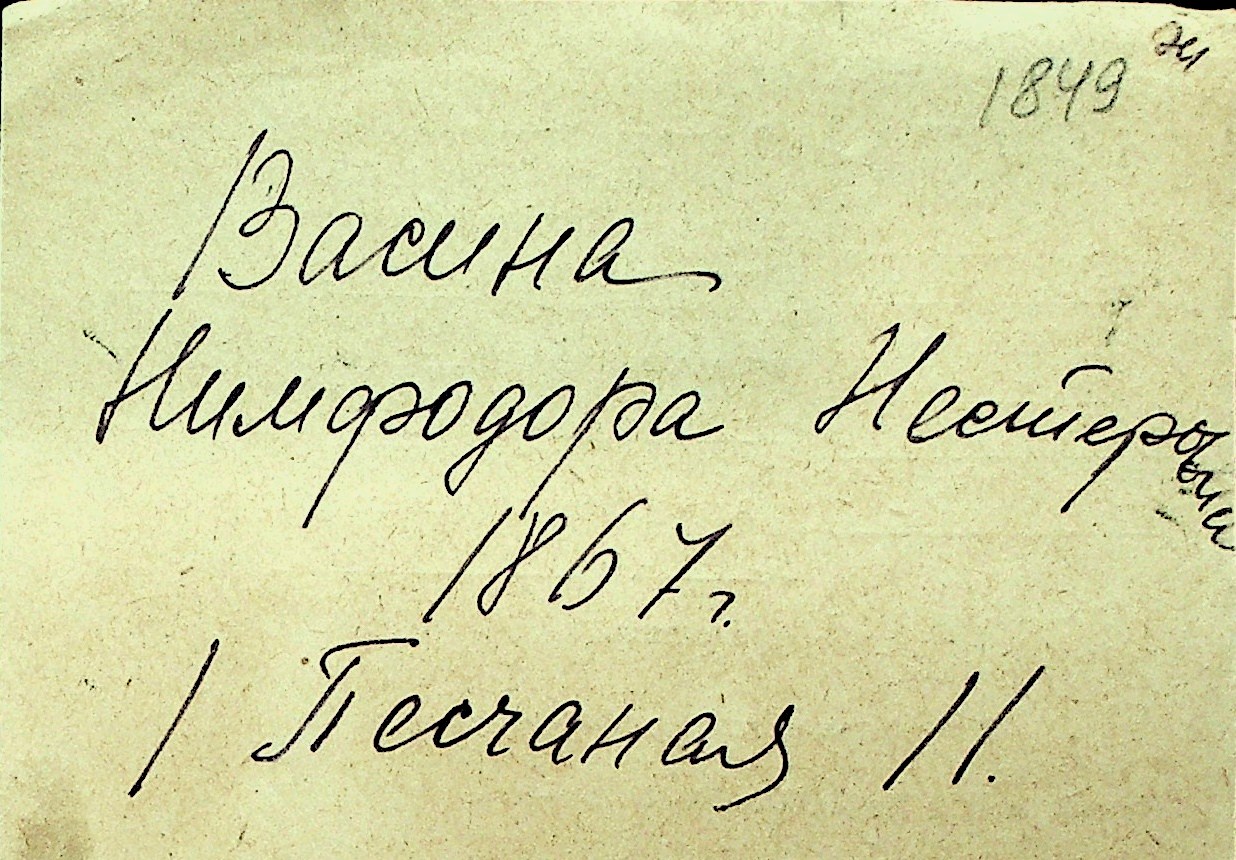 1849 эл
Васина
Нимфодора Нестеровна
1867г.
1 Песчаная 11.